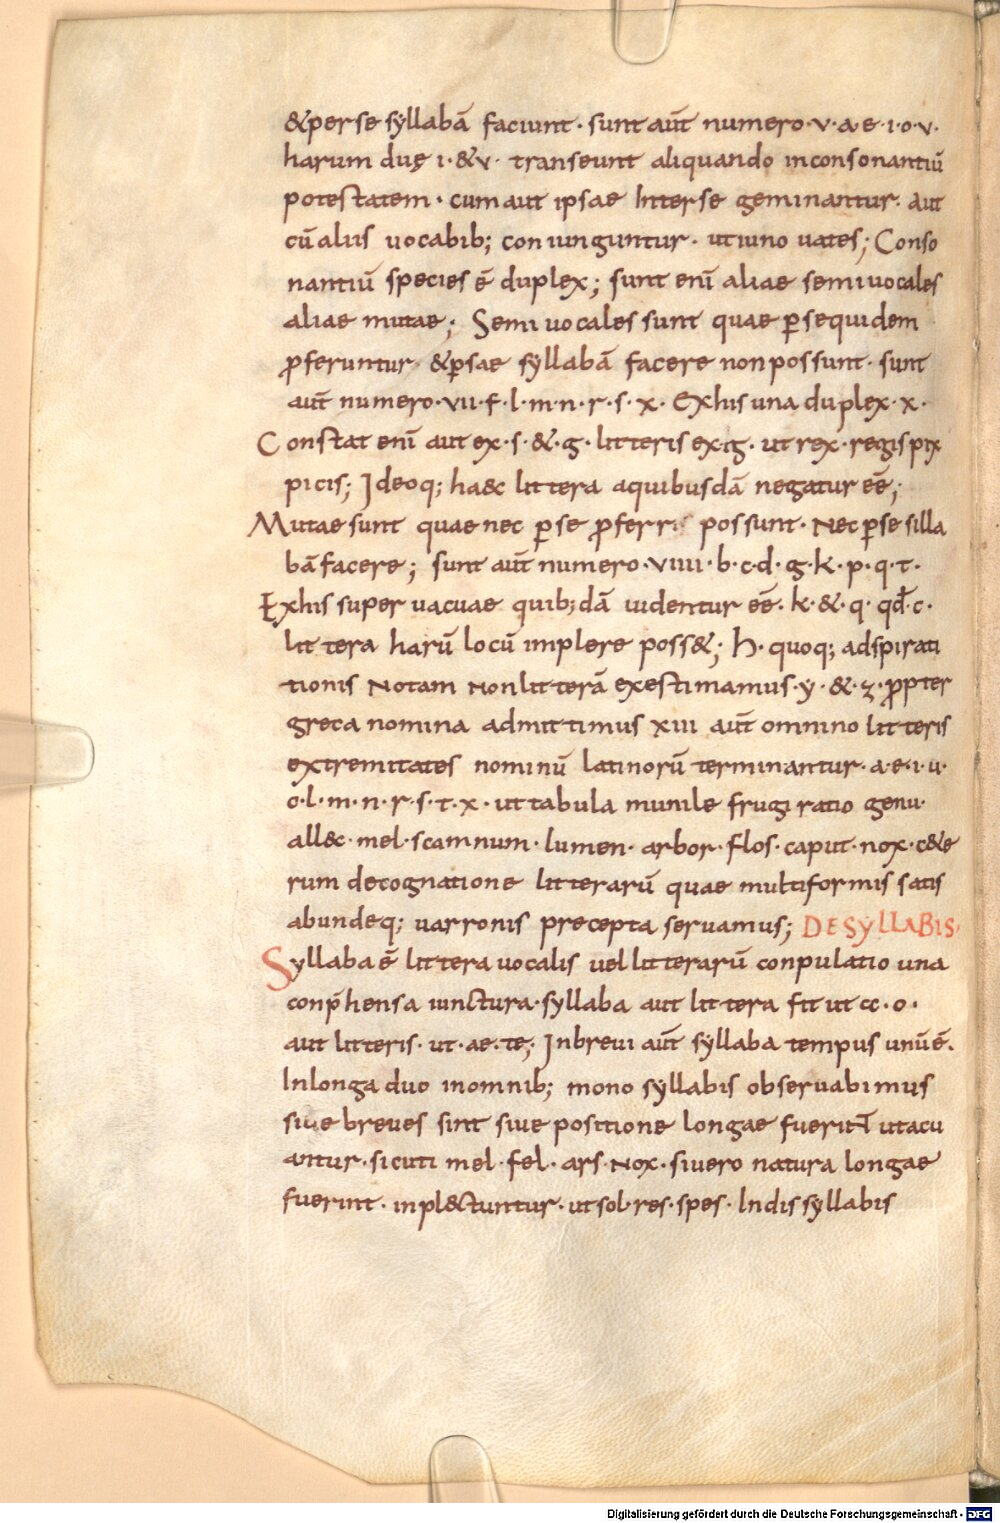 &perse syllabā faciunt· sunt aūt numero·v·a·e·i·o·v·
harum duę i·&v· transeunt aliquando inconsonantiū
potestatem· cum aut ipsae Interse geminantur· aut
cū aliis uocabib; coniunguntur· ut iuno uates; Conso
nantiū species ē duplex; sunt enī aliae semiuocales
aliae mutae; Semiuocales sunt quae ꝑsequidem
ꝓferuntur· &ꝑsae syllabā facere nonpossunt· sunt
aūt numero·vii·f·l·m·n·r·s·x· Exhis una duplex·x·
Constat enī aut ex·s·&·g·litteris ex·ig· ut rex·regis pix
picis; Ideoq; haec littera aquibusdā negatur eē;
Mutae sunt quae nec ꝑse ꝓferri possunt· Nec ꝑse silla
bā facere; sunt aūt numero·viiii·b·c·d·g·k·p·q·t·
Exhis superuacuae quib;dā uidentur eē· k·&·q· qđ·c·
littera harū locū implere poss&; h· quoq; adspirati
tionis Notam Nonlitterā exestimamus·y·&·z·ꝓpter
greca nomina admittimus xiii aūt omnino litteris
extremitates nominū latinorū terminantur·a·e·i·u·
o·l·m·n·r·s·t·x· ut tabula munile frugi ratio genu·
all&c·mel·scamnum·lumen· arbor·flos·caput·nox·c&e
rum decognatione litterarū quae multiformis satis
abundeq; uarronis precepta seruamus; DE SYLLABIS·
Syllaba ē littera uocalis uel litterarū conpulatio una
conp̄hensa iunctura·syllaba aut littera fit ut cc·o·
aut litteris· ut·ae·te; Inbreui aūt syllaba tempus unū ē·
Inlonga duo inomnib; mono syllabis obseruabimus
siue breues sint siue positione longae fuerint utacu
antur·sicuti mel·fel·ars·Nox·siuero natura longae
fuerint·inpl&ctuntur·ut sol·res·spes· Indissyllabis
Digitalisierung gefördert durch die Deutsche Forschungsgemeinschaft - DFG